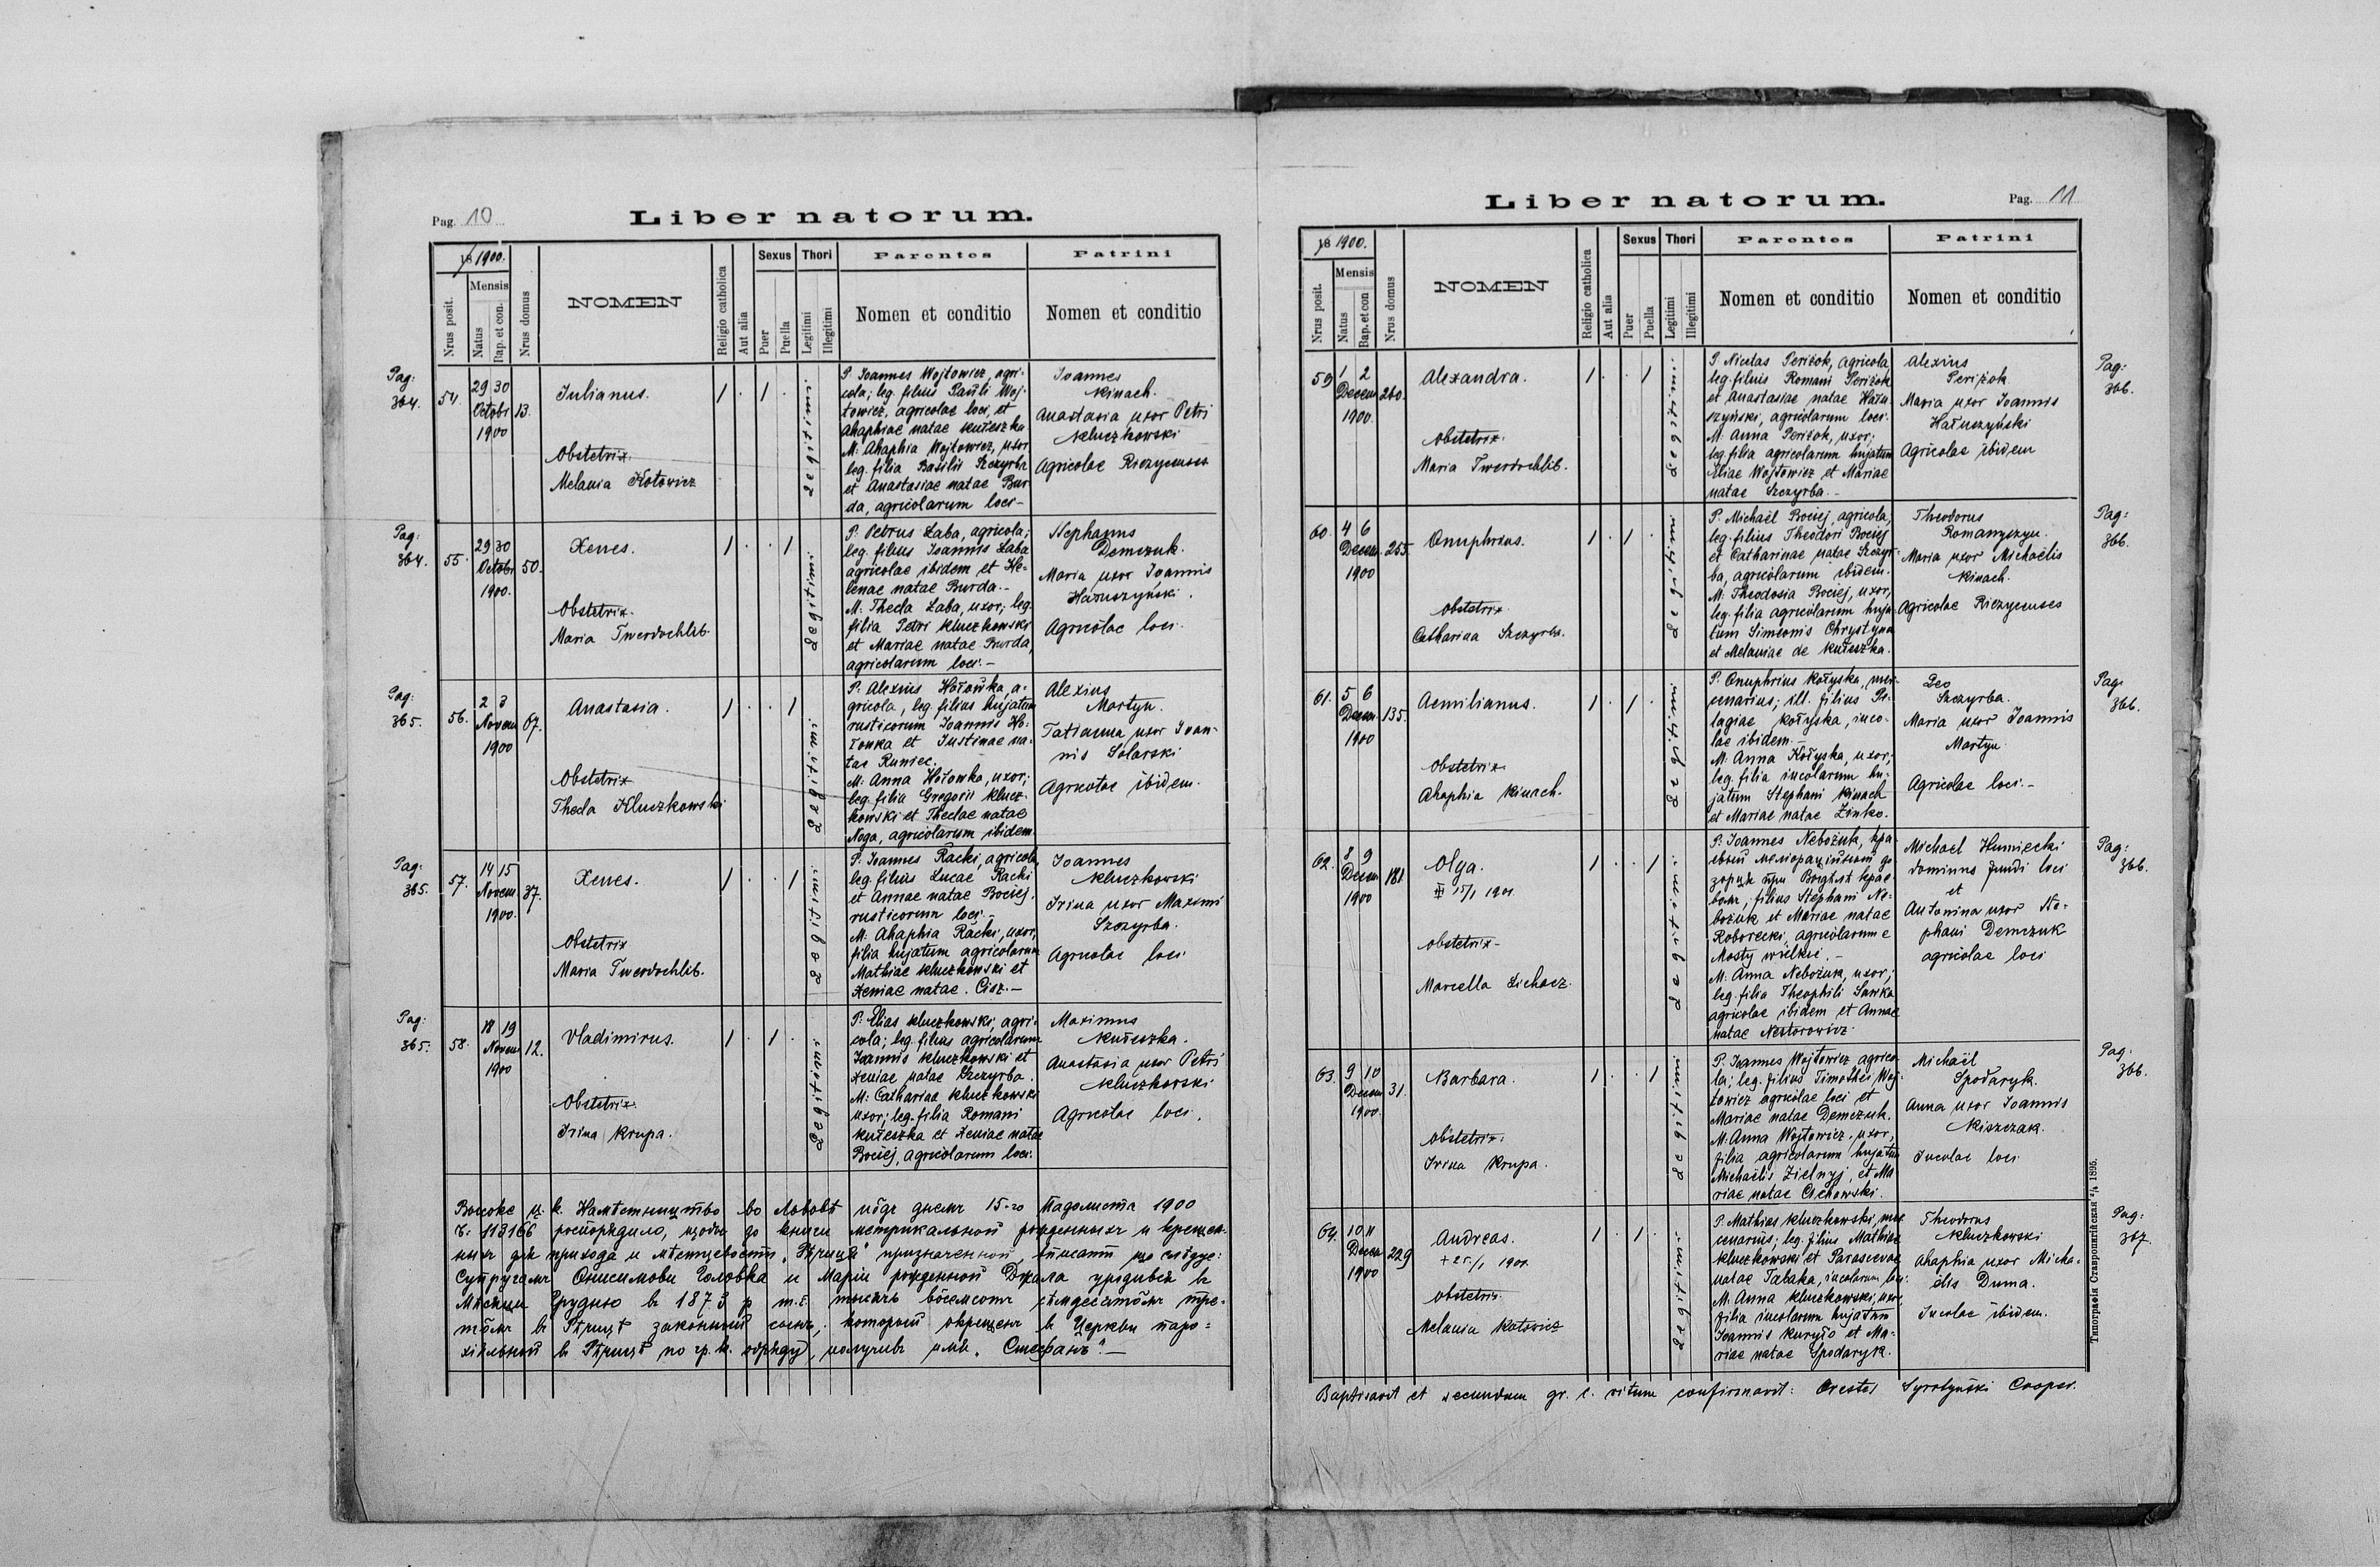 Pag. 10
Liber natorum.
18 1900.
Nrus posit.
Mensis
Natus
Bap. et con.
Nrus domus
NOMEN
Religio catholica
Aut alia
Sexus
Puer
Puella
Thori
Legitimi
Illegitimi
Parentes
Nomen et conditio
Patrini
Nomen et conditio
Pag:
364.
54.
29 30
Octobr
1900
13.
Julianus.
Obstetrix.
Melania Kotowicz
1 . 1 .
Legitimi
P. Joannes Wojtowicz, agri-
cola; leg. filius Pauli Woj-
towicz, agricolae loci, et
Ahaphiae natae Kułeszka
M: Ahaphia Wojtowicz, uxor
leg. filia Basilii Szczyrba
et Anastasiae natae Bur
da, agricolarum loci-
Joannes
Kinach.
Anastasia uxor Petri
Kluczkowski
Agricolae Riczycenses
Pag:
364.
55.
29 30
Octobr
1900.
50.
Xenes.
Obstetrix.
Maria Twerdochlib.
1 . . 1
Legitimi
P. Petrus Łaba, agricola;
leg. filius Joannis Łaba
agricolae ibidem et He-
lenae natae Burda.-
M: Thecla Łaba, uxor; leg.
filia Petri Kluczkowski
et Mariae natae Burda,
agricolarum loci.-
Stephanus
Demczuk.
Maria uxor Joannis
Hałuszyński.
Agricolae loci.
Pag:
365.
56.
2 3
Novem
1900
67.
Anastasia.
Obstetrix
Thecla Kluczkowski
1 . . 1
Legitimi
P. Alexius Hołowka, a-
gricola, leg. filius hujatum
rusticorum Joannis Ho-
łowka et Justinae na-
tae Runiec.
M: Anna Hołowka, uxor;
leg. filia Gregorii Klucz-
kowski et Theclae natae
Noga, agricolarum ibidem.
Alexius
Martyn.
Tatianna uxor Joan-
nis Solarski
Agricolae ibidem.
Pag:
365.
57.
14 15
Novem
1900.
37.
Xenes.
Obstetrix
Maria Twerdochlib.
1 . . 1
Legitimi
P. Joannes Racki, agricola,
leg. filius Lucae Racki
et Annae natae Bociej.
rusticorum loci.-
M. Ahaphia Racki, uxor,
filia hujatum agricolarum
Mathiae Kluczkowski et
Xeniae natae Cisz.-
Joannes
Kluczkowski
Irina uxor Maximi
Szczyrba.
Agricolae loci
Pag:
365.
58.
18 19
Novem
1900
12.
Vladimirus.
Obstetrix.
Irina Krupa.
1 . 1 .
Legitimi
P. Elias Kluczkowski, agri-
cola; leg. filius agricolarum
Joannis Kluczkowski et
Xeniae natae Szczyrba.
M: Catharina Kluczkowski
uxor; leg. filia Romani
Kułeszka et Xeniae natae
Bociej, agricolarum loci.
Maximus
Kułeszka.
Anastasia uxor Petri
Kluczkowski
Agricolae loci.
Высоке ц. к. Намѣстництво во Львовѣ підъ днемъ 15-го Падолиста 1900
Ч: 113166 роспорядило, щобы до книги метрикальнои рожденныхъ и крещен-
ныхъ для прихода и мѣстцевости "Рѣчица" призначеннои вписати що слѣдує:
Супругамъ Онисимови Головка и Маріи рожденной Джала уродивъ ся въ
Мѣсяци Грудню въ 1873 р. т.є. тысячь восемсотъ сѣмдесатôмъ тре-
тôмъ въ Рѣчицѣ законный сынъ, который окрещенъ въ Церкви паро-
хіяльной въ Рѣчицѣ по гр. к. обряду, получивъ имя "Стефанъ".-
Pag. 11
Liber natorum.
18 1900.
Nrus posit.
Mensis
Natus
Bap. et con
Nrus domus
NOMEN
Religio catholica
Aut alia
Sexus
Puer
Puella
Thori
Legitimi
Illegitimi
Parentes
Nomen et conditio
Patrini
Nomen et conditio
59
1 2
Decem
1900.
260.
Alexandra.
Obstetrix.
Maria Twerdochlib.
1 . . 1
Legitimi
P. Nicetas Periżok, agricola
leg. filius Romani Periżok
et Anastasiae natae Hału-
szyński, agricolarum loci.
M: Anna Periżok, uxor;
leg. filia agricolarum hujatum
Eliae Wojtowicz et Mariae
natae Szczyrba.-
Alexius
Periżok
Maria uxor Joannis
Hałuszyński
Agricolae ibidem
Pag:
366.
60.
4 6
Decem.
1900
255.
Onuphrius.
Obstetrix
Catharina Szczyrba.
1 . 1 .
Legitimi
P. Michaël Bociej, agricola,
leg. filius Theodori Bociej
et Catharinae natae Szczyr-
ba, agricolarum ibidem.
M: Theodosia Bociej, uxor,
leg. filia agricolarum huja-
tum Simeonis Chrystyna
et Melaniae de Kułeszka.
Theodorus
Romanyszyn.
Maria uxor Michaëlis
Kinach.
Agricolae Riczycenses
Pag:
366.
61.
5 6
Decem
1900
135.
Aemilianus.
Obstetrix
Ahaphia Kinach.
1 . 1 .
Legitimi
P. Onuphrius Kołyska, mer-
cenarius; ill. filius Pe-
lagiae Kołyska, inco-
lae ibidem.-
M: Anna Kołyska, uxor,
leg. filia incolarum hu-
jatum Stephani Kinach
et Mariae natae Zinko.
Leo
Szczyrba.
Maria uxor Joannis
Martyn.
Agricolae loci.-
Pag:
366.
62.
8 9
Decem
1900
181.
Olga.
15/1 1901.
Obstetrix-
Marcella Lichacz.
1 . . 1
Legitimi
P. Joannes Nebożuk, кра-
евый меліораційный до-
зорця при Выдѣлѣ крае-
вомъ, filius Stephani Ne-
bożuk et Mariae natae
Roborecki, agricolarum e
Mosty wielkie.-
M: Anna Nebożuk, uxor;
leg. filia Theophili Sawka
agricolae ibidem et Annae
natae Nestorowicz.
Michael Humiecki
dominus fundi loci
et
Antonina uxor Ste-
phani Demczuk
agricolae loci
Pag:
366.
63.
9 10
Decem
1900.
31.
Barbara.
Obstetrix.
Irina Krupa.
1 . . 1
Legitimi
P. Joannes Wojtowicz agrico-
la; leg. filius Timothei Woj-
towicz agricolae loci et
Mariae natae Demczuk.
M: Anna Wojtowicz, uxor,
filia agricolarum hujatum
Michaëlis Zielnyj, et Ma
riae natae Cichowski.
Michaël
Spodaryk.
Anna uxor Joannis
Kiszczak.
Incolae loci
Pag:
366.
64.
10 11
Decem
1900
229
Andreas.
+ 25/1 1901.
Obstetrix.
Melania Kotowicz
1 . 1 .
Legitimi
P. Mathias Kluczkowski, mer
cenarius; leg. filius Mathiae
Kluczkowski et Parascevae
natae Tabaka, incolarum loci.
M: Anna Kluczkowski, uxor,
filia incolarum hujatum
Joannis Kuryło et Ma-
riae natae Spodaryk.
Theodorus
Kluczkowski
Ahaphia uxor Micha-
ëlis Duma.
Incolae ibidem.
Pag:
367.
Типографія Ставропигійская 1895.
Baptisavit et secundum gr. c. ritum confirmavit: Orestes Syrotyński Cooper.